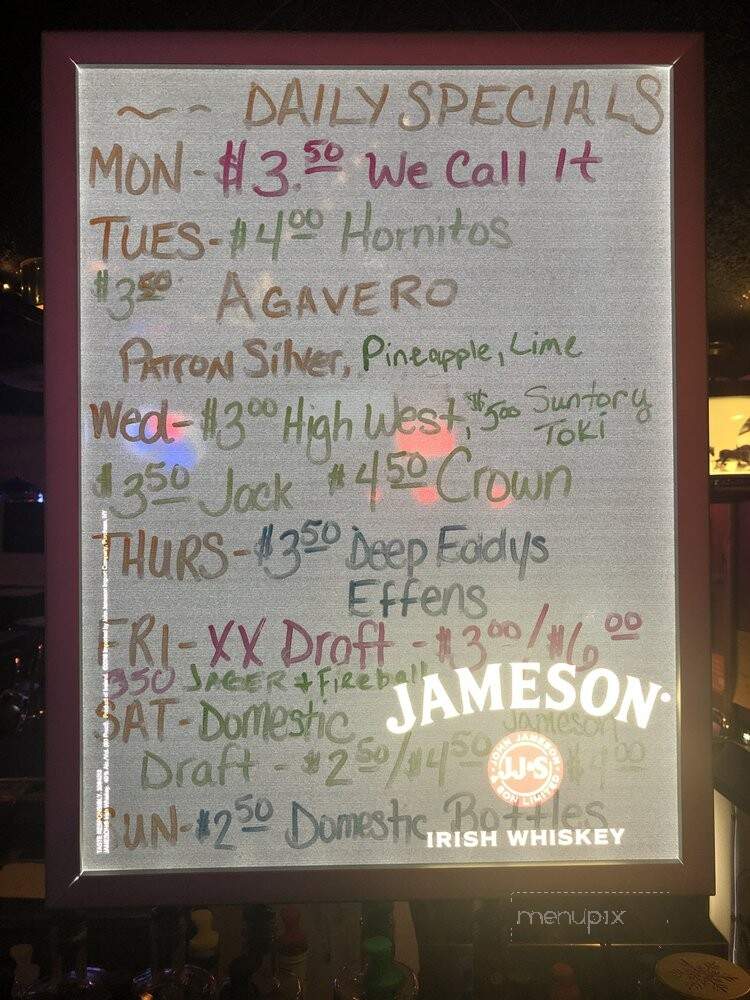 ~ - DAILY SPECIALS
MON - $3.50 We Call It
TUES - $4.00 Hornitos
$3.50 AGAVERO
PATRON Silver, Pineapple, Lime
Wed - $3.00 High West, $5.00 Suntory
TOKi
$3.50 Jack $4.50 Crown
THURS - $3.50 Deep Eddys
Effens
FRI - XX Draft - $3.00/$6.00
350 JAGER + Fireball
JAMESON
SAT - Domestic Jameson
Draft - $2.50/$4.50 $4.00
JOHN JAMESON
JJ&S
SON LIMITED
SUN - $2.50 Domestic Bottles
IRISH WHISKEY
menupix